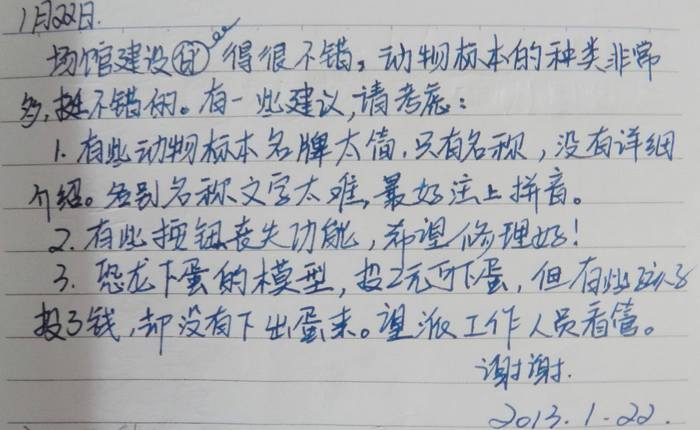 1月22日.
场馆建设的得很不错。动物标本的种类非常
多,挺不错的。有一些建议,请考虑:
1. 有些动物标本名牌太简.只有名称,没有详细
介绍。个别名称文字太难,最好注上拼音。
2. 有些按钮丧失功能,希望修理好!
3. 恐龙下蛋的模型,投2元可下蛋,但有些孩子
投了钱,却没有下出蛋来。望派工作人员看管。
谢谢.
2013.1.22.